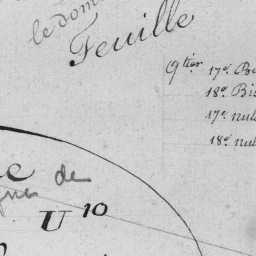 le dom
Feuille
9tier
17e. B
18e. Bi
17e nul
18e nul
de
U 10